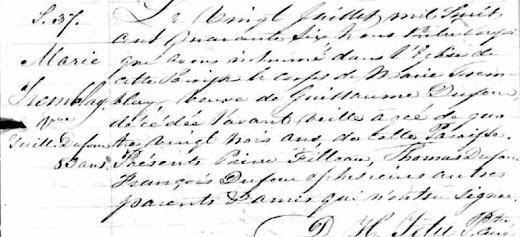 S. 37.
Marie
Tremblay
Vve
Guill. Dufour
83 ans.
Le Vingt Juillet, mil huit
cent quarante six Nous
que avons inhumé dans l'Eglise de
cette Paroisse le corps de Marie Trem-
blay, veuve de Guillaume Dufour
décédée l'avant veille agée de qua-
tre vingt trois ans, de cette Paroisse.
Présents Pierre Filteau, Thomas Dufour
François Dufour & plusieurs autres
parents & amis qui n'ont su signer.
D. H. Tetu Ptre
Curé